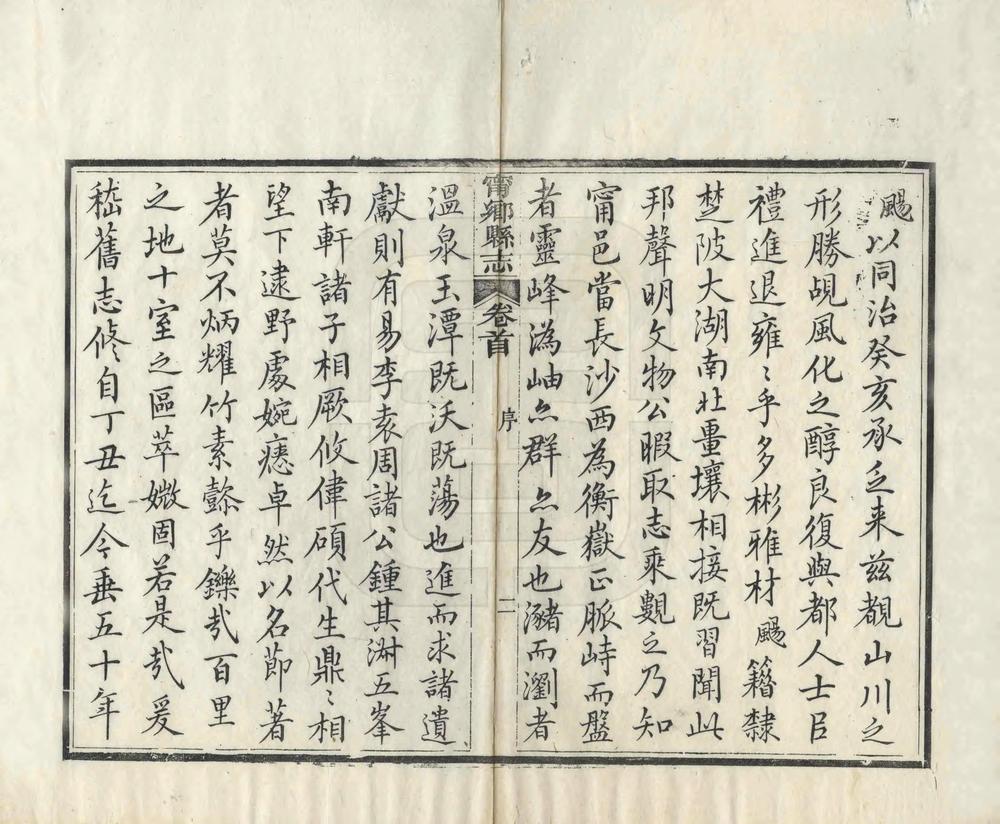 颺以同治癸亥承乏来兹覩山川之
形勝覘風化之醇良復與都人士臣
禮進退雍〻乎多彬雅材颺籍隸
楚陂大湖南北畺壤相接既習聞此
邦聲明文物公暇取志乘觀之乃知
甯邑當長沙西為衡嶽正脈峙而盤
者靈峰溈岫亽群亽友也瀦而瀏者
甯鄉縣志 卷首 序 二
溫泉玉潭既沃既蕩也進而求諸遺
獻則有易李袁周諸公鍾其淵五峯
南軒諸子相厥攸偉碩代生鼎〻相
望下逮野處婉㥁卓然以名節著
者莫不炳耀竹素懿乎鑠哉百里
之地十室之區萃媺固若是哉爰
嵇舊志修自丁丑迄今垂五十年